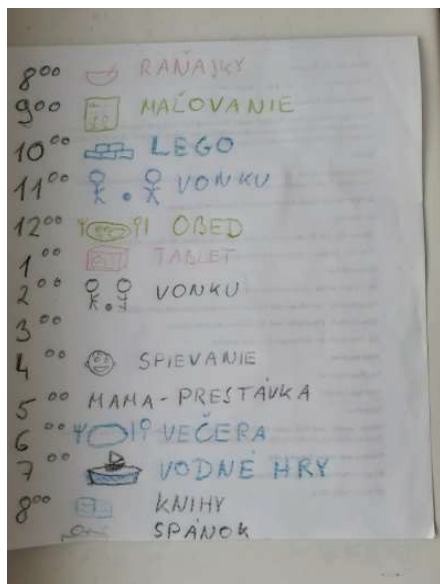 8⁰⁰ RAŇAJKY
9⁰⁰ MAĽOVANIE
10⁰⁰ LEGO
11⁰⁰ VONKU
12⁰⁰ OBED
1⁰⁰ TABLET
2⁰⁰ VONKU
3⁰⁰
4⁰⁰ SPIEVANIE
5⁰⁰ MAMA-PRESTÁVKA
6⁰⁰ VEČERA
7⁰⁰ VODNÉ HRY
8⁰⁰ KNIHY
SPÁNOK